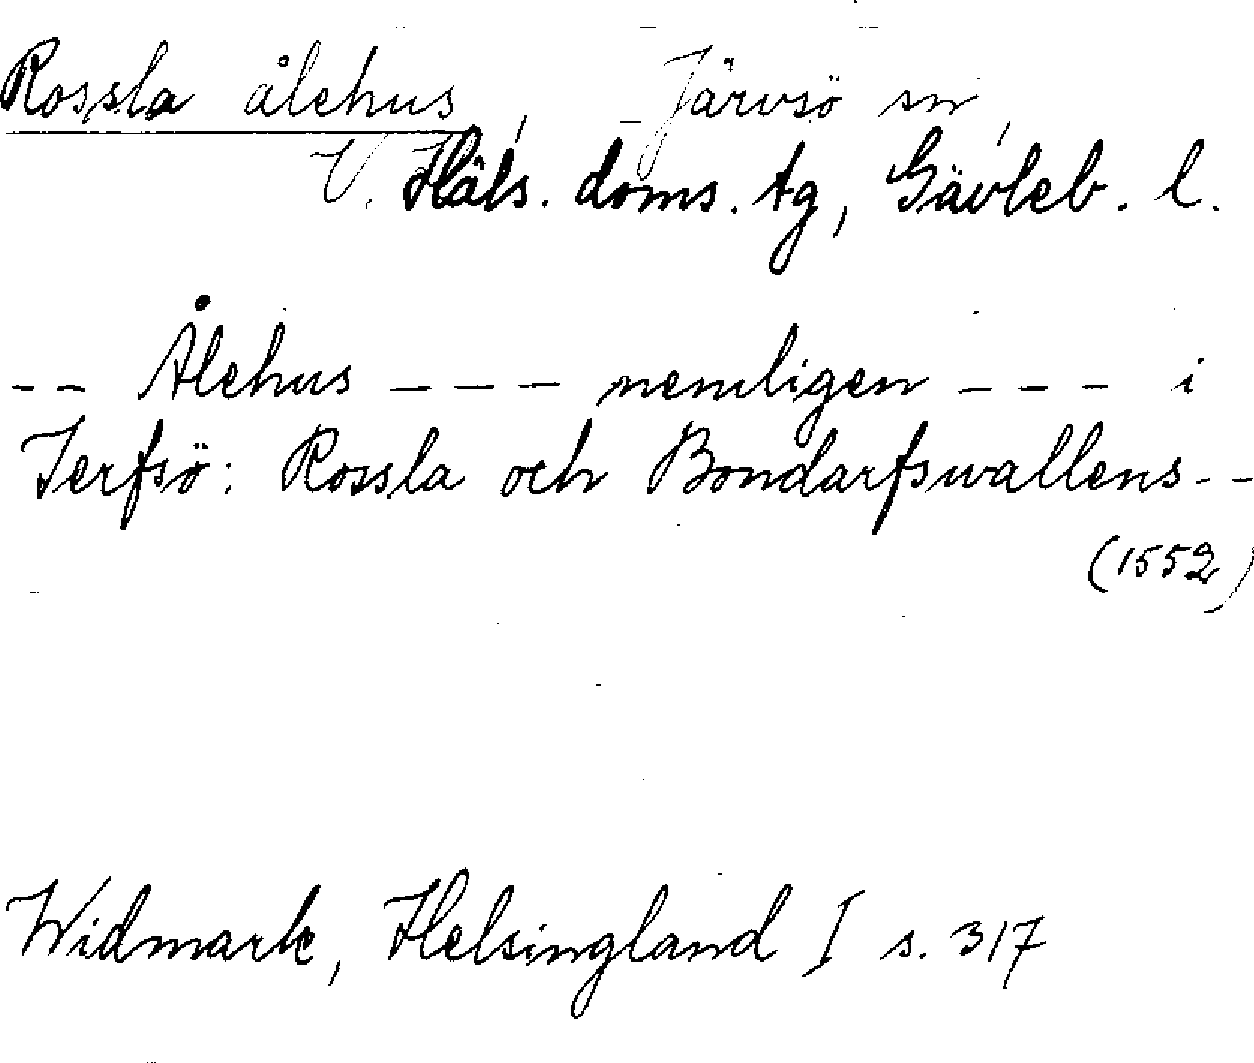 Rossla ålehus, Järvsö sn,
V. Häls. doms. tg, Gävleb. l.
-- Ålehus --- nemligen --- i
Jerfsö: Rossla och Bondarfswallens--
(1552)
Widmark, Helsingland I s. 317